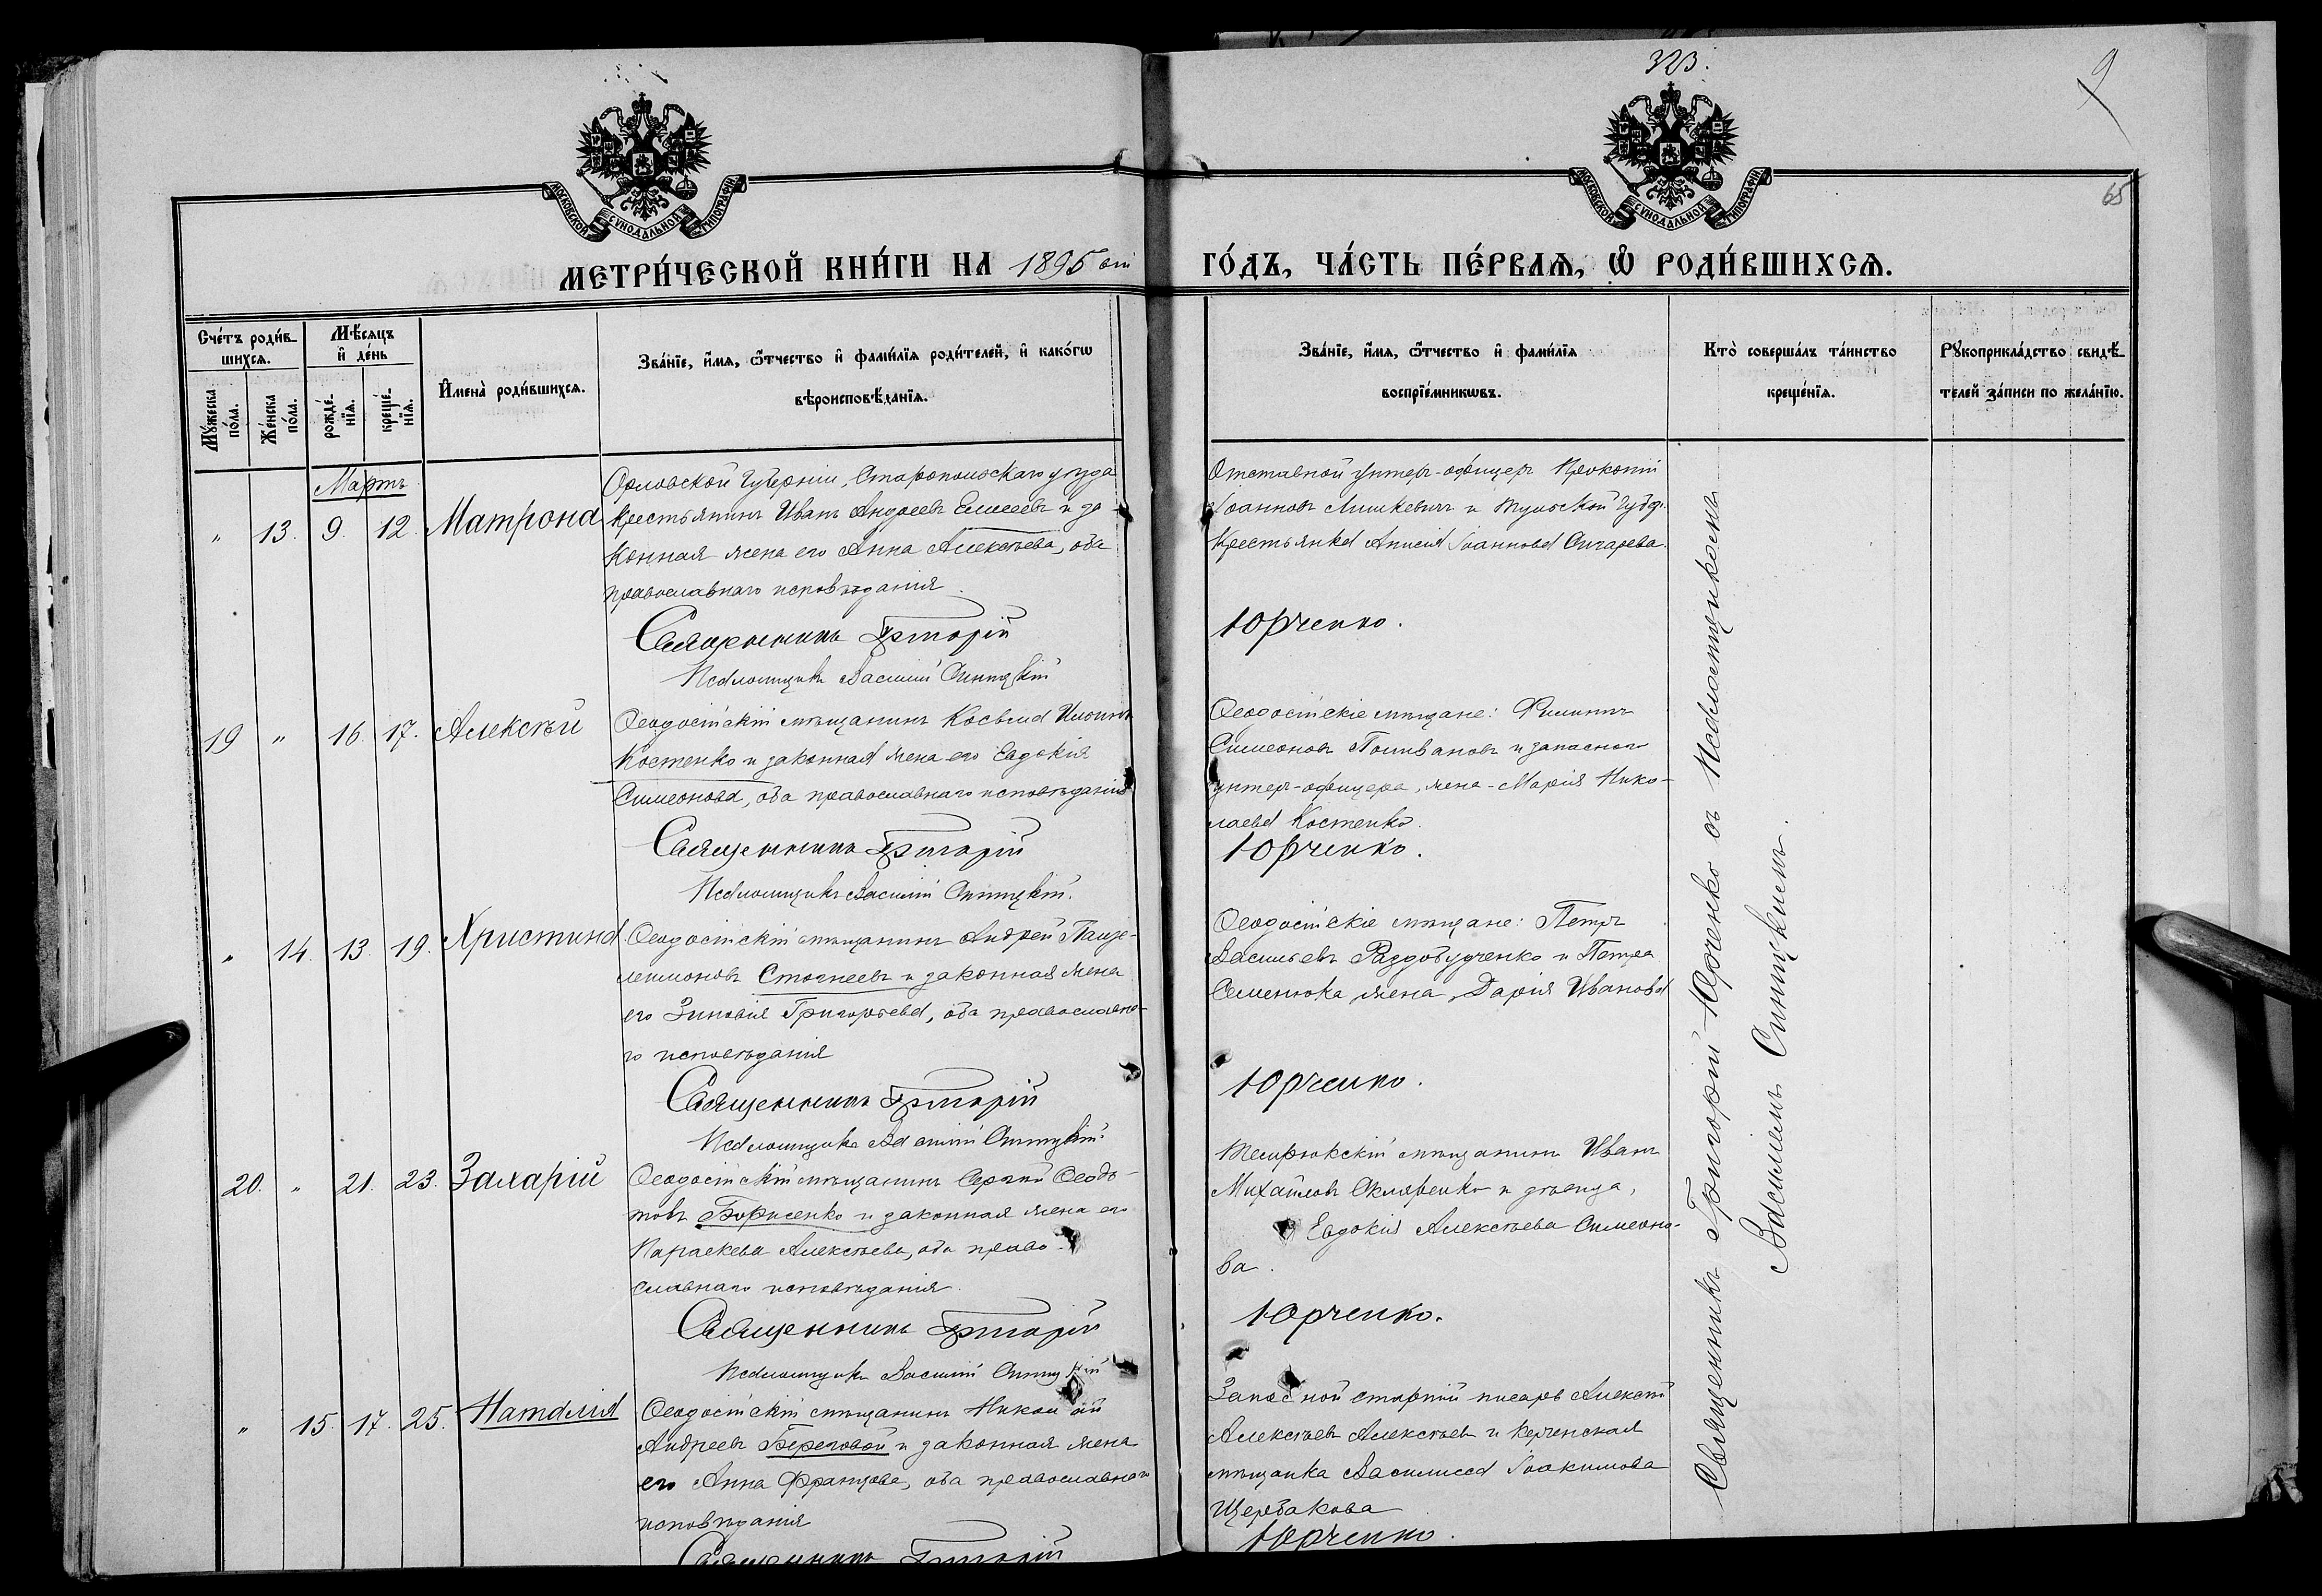 323.
9
65
МОСКОВСКОЙ СѴНОДАЛЬНОЙ ТИПОГРАФІИ
МОСКОВСКОЙ СѴНОДАЛЬНОЙ ТИПОГРАФІИ
МЕТРИ́ЧЕСКОЙ КНИ́ГИ НА 1895 ый ГО́ДЪ, ЧА́СТЬ ПЕ́РВАѦ, Ѽ РОДИ́ВШИХСѦ.
Сче́тъ роди́в-
шихсѧ.
Мꙋ́жеска по́ла.
Же́нска по́ла.
Мѣ́сѧцъ
и҆ де́нь
рожде́-
нїѧ.
креще́-
нїѧ.
И҆мена̀ роди́вшихсѧ.
Зва́нїе, и҆́мѧ, ѻ҆́тчество и҆ фами́лїѧ роди́телей, и҆ како́гѡ
вѣроисповѣ́данїѧ.
Зва́нїе, и҆́мѧ, ѻ҆́тчество и҆ фами́лїѧ
воспрїе́мникѡвъ.
Кто̀ соверша́лъ та́инство
креще́нїѧ.
Рꙋкоприкла́дство свидѣ́-
телей за́писи по жела́нїю.
Мартъ
" 13. 9. 12. Матрона
Орловской Губерніи, Старопольскаго уѣзда
крестьянинъ Иванъ Андреевъ Елисеевъ и за-
конная жена его Анна Алексѣева, оба
православнаго исповѣданія.
Священникъ Григорій
Псаломщикъ Василій Синицкій
Отставной унтеръ-офицеръ Прокопій
Іоанновъ Лишкевичъ и Тульской губер.
крестьянка Анисія Іоаннова Сичарева.
Юрченко.
19 " 16. 17. Алексѣй
Ѳеодосійскій мѣщанинъ Косьма Иліинъ
Костенко и законная жена его Евдокія
Симеонова, оба православнаго исповѣданія
Священникъ Григорій
Псаломщикъ Василій Синицкій.
Ѳеодосійскіе мѣщане: Филиппъ
Симеоновъ Поливановъ и запаснаго
унтеръ-офицера, жена - Марія Нико-
лаева Костенко.
Юрченко.
" 14. 13. 19. Христина
Ѳеодосійскій мѣщанинъ Андрей Панте-
леимоновъ Стогнеевъ и законная жена
его Зиновія Григорьева, оба православна-
го исповѣданія
Священникъ Григорій
Псаломщикъ Василій Синицкій.
Ѳеодосійскіе мѣщане: Петръ
Васильевъ Раздобудченко и Петра
Семенюка жена, Дарія Иванова
Юрченко.
20. " 21. 23. Захарій
Ѳеодосійскій мѣщанинъ Сергій Ѳеодо-
товъ Борисенко и законная жена его
Параскева Алексѣева, оба право-
славнаго исповѣданія.
Священникъ Григорій
Псаломщикъ Василій Синицкій
Темрюкскій мѣщанинъ Иванъ
Михайловъ Скляренко и дѣвица,
Евдокія Алексѣева Симеоно-
ва.
Юрченко.
" 15. 17. 25. Наталія
Ѳеодосійскій мѣщанинъ Николай
Андреевъ Береговой и законная жена
его Анна Францова, оба православнаго
исповѣданія
Священникъ Григорій
Запасной старшій писарь Алексѣй
Алексѣевъ Алексѣевъ и керченская
мѣщанка Василисса Іоакимова
Щербакова
Юрченко.
Священникъ Григорій Юрченко съ псаломщикомъ
Василіемъ Синицкимъ.